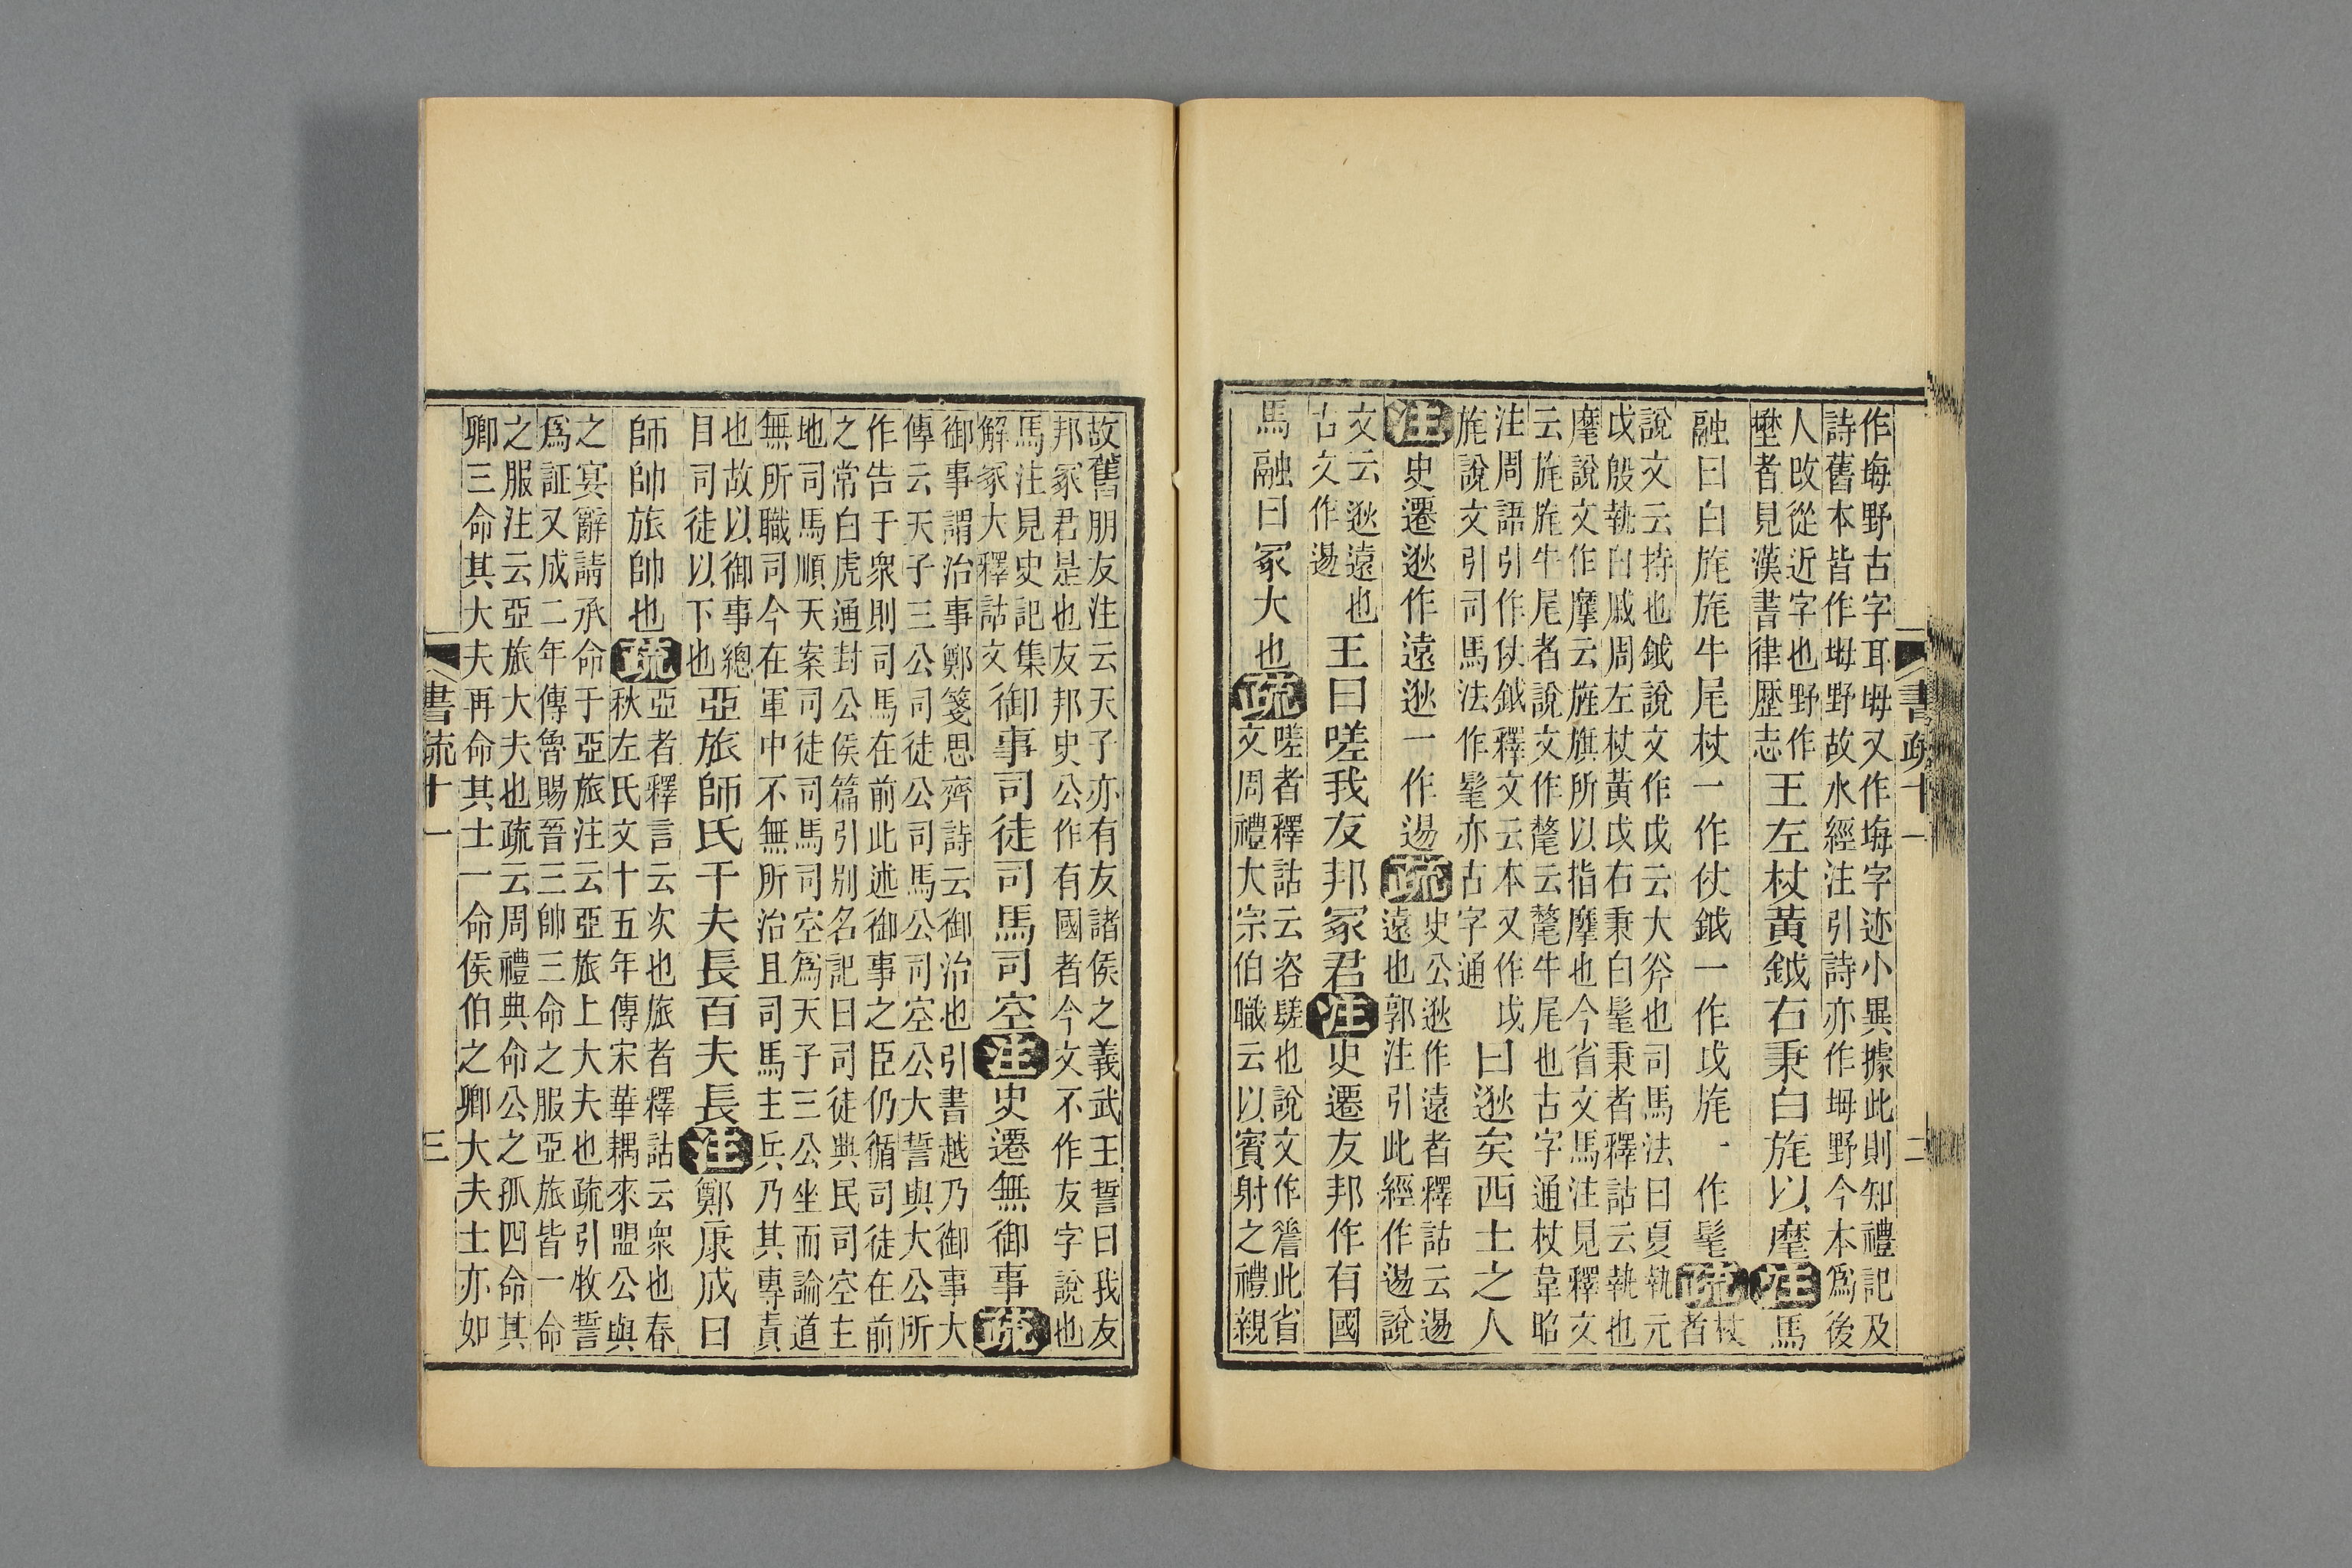 作坶野古字耳坶又作坶字迹小異據此則知禮記及
詩舊本皆作坶野故水經注引詩亦作坶野今本爲後
人改從近字也野作
壄者見漢書律歷志
王左杖黃鉞右秉白旄以麾注馬
融曰白旄旄牛尾杖一作仗鉞一作戉旄一作髦疏杖者
說文云持也鉞說文作戉云大斧也司馬法曰夏執元
戉殷執白戚周左杖黃戉右秉白髦秉者釋詁云執也
麾說文作摩云旌旗所以指摩也今省文馬注見釋文
云旄旄牛尾者說文作氂云氂牛尾也古字通杖韋昭
注周語引作仗鉞釋文云本又作戉
旄說文引司馬法作髦亦古字通
曰逖矣西土之人
注史遷逖作遠逖一作逷疏
史公逖作遠者釋詁云逷
遠也郭注引此經作逷說
文云逖遠也
古文作逷
王曰嗟我友邦冢君注史遷友邦作有國
馬融曰冢大也疏
嗟者釋詁云咨䰈也說文作謩此省
文周禮大宗伯職云以賓射之禮親
書疏十一
二
故舊朋友注云天子亦有友諸侯之義武王誓曰我友
邦冢君是也友邦史公作有國者今文不作友字說也
馬注見史記集
解冢大釋詁文
御事司徒司馬司空注史遷無御事疏
御事謂治事鄭箋思齊詩云御治也引書越乃御事大
傳云天子三公司徒公司馬公司空公大誓與大公所
作告于衆則司馬在前此述御事之臣仍循司徒在前
之常白虎通封公侯篇引別名記曰司徒典民司空主
地司馬順天案司徒司馬司空爲天子三公坐而論道
無所職司今在軍中不無所治且司馬主兵乃其專責
也故以御事總
目司徒以下也
亞旅師氏千夫長百夫長注鄭康成曰
師帥旅帥也疏
亞者釋言云次也旅者釋詁云衆也春
秋左氏文十五年傳宋華耦來盟公與
之宴辭請承命于亞旅注云亞旅上大夫也疏引牧誓
爲証又成二年傳魯賜晉三帥三命之服亞旅皆一命
之服注云亞旅大夫也疏云周禮典命公之孤四命其
卿三命其大夫再命其士一命侯伯之卿大夫士亦如
書疏十一
三